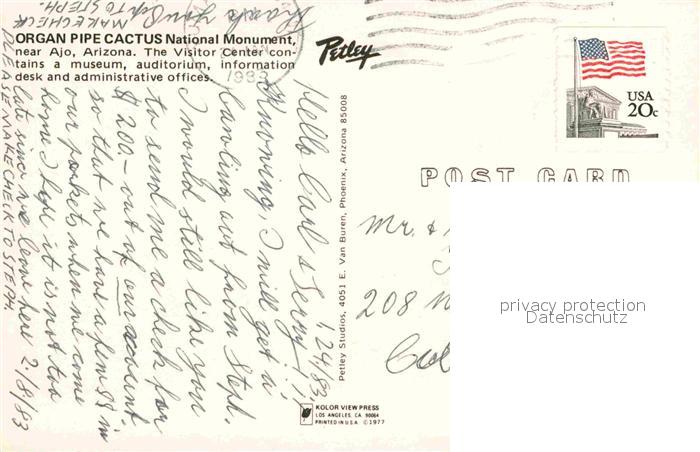 ORGAN PIPE CACTUS National Monument,
near Ajo, Arizona. The Visitor Center con-
tains a museum, auditorium, information
desk and administrative offices.
Petley
1983
USA
20c
POST CARD
Petley Studios, 4051 E. Van Buren, Phoenix, Arizona 85008
1,24,83,
Hello Carl & Gerry!!
Knowing, I will get a
bawling out from Steph.
I would still like you
to send me a check for
$200.— out of our account.
so that we have a few $$ in
our pockets when me come
home I hope it is not too
late since we leave here 2/8/83
PLEASE MAKE CHECK TO STEPH.
MAKE CHECK
TO STEPH.
Thanks you
Mr. &
208
privacy protection
Datenschutz
KOLOR VIEW PRESS
LOS ANGELES, CA. 90064
PRINTED IN U.S.A. ©1977